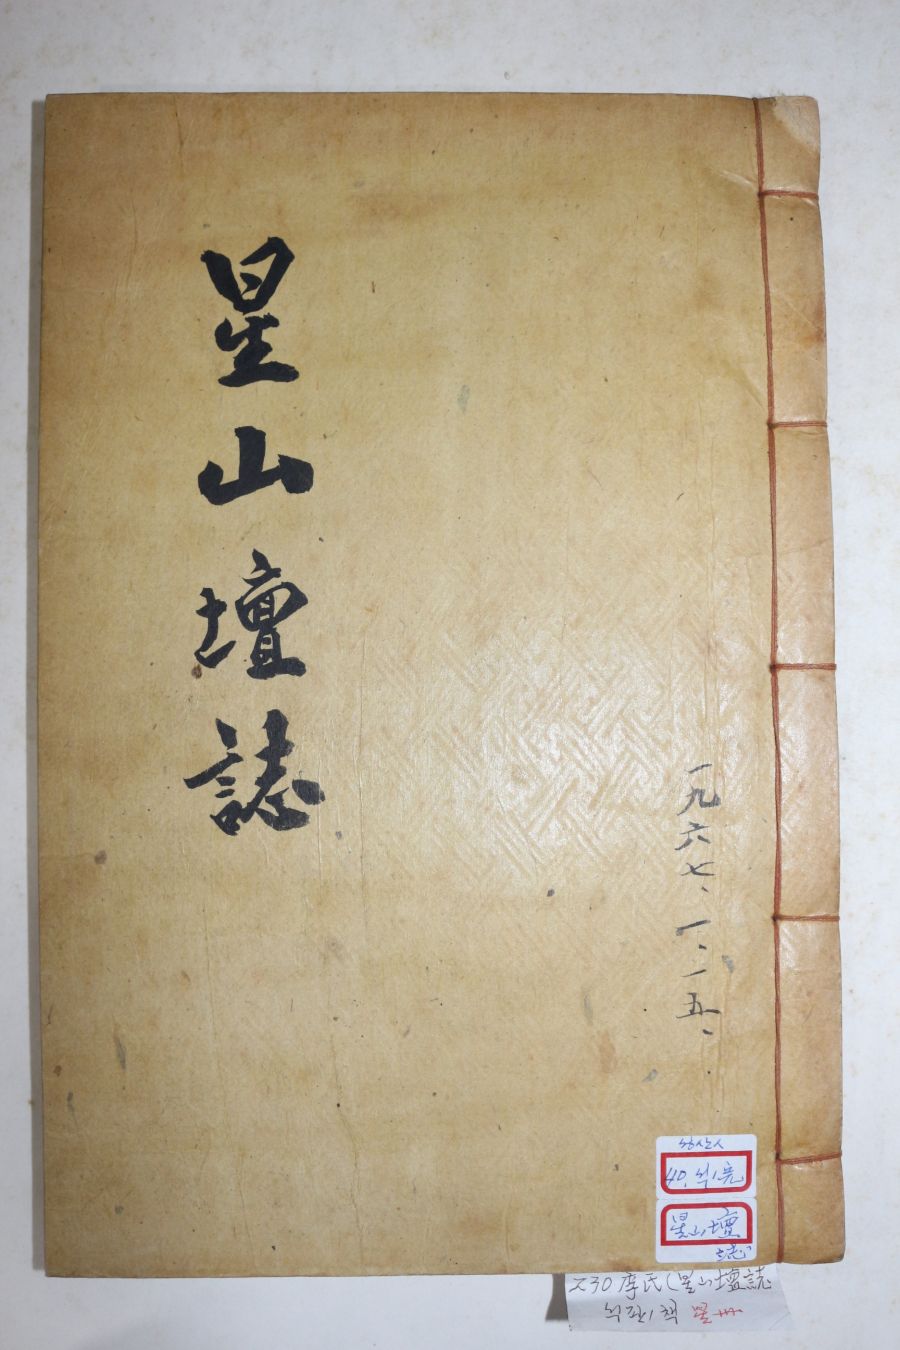 星山壇誌
一九六七、一、一五、
성산시
40. 석1完
星山壇
誌
ス30 李氏(星山壇誌
석판1책 星州